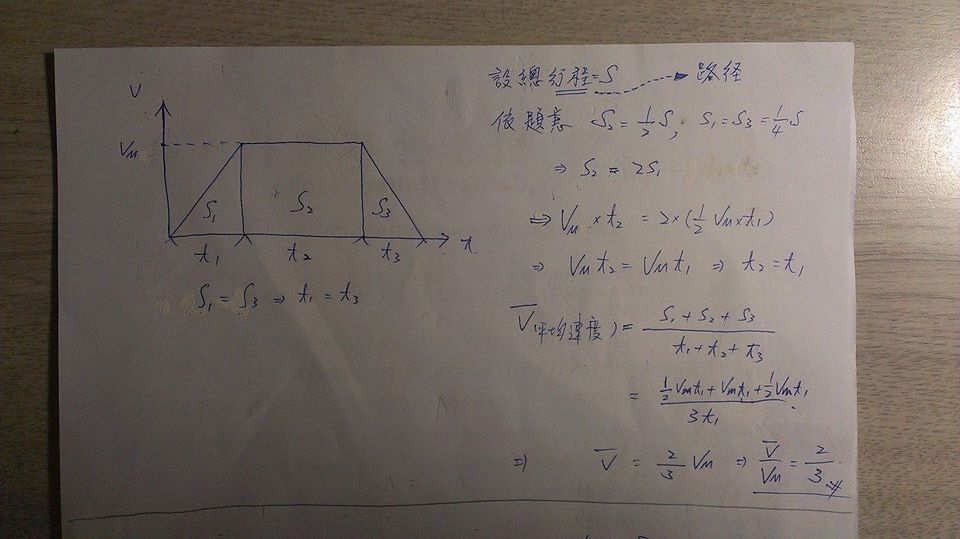 V
V_M
S₁
S₂
S₃
t
t₁ t₂ t₃
S₁ = S₃ ⇒ t₁ = t₃
設總行程=S → 路径
依題意 S₂ = 1/2 S, S₁ = S₃ = 1/4 S
⇒ S₂ = 2S₁
⇒ V_M × t₂ = 2×(1/2 V_M × t₁)
⇒ V_M t₂ = V_M t₁ ⇒ t₂ = t₁
V̅(平均速度) = (S₁ + S₂ + S₃)/(t₁ + t₂ + t₃)
= (1/2 V_M t₁ + V_M t₁ + 1/2 V_M t₁)/(3t₁)
⇒ V̅ = 2/3 V_M ⇒ V̅/V_M = 2/3 #